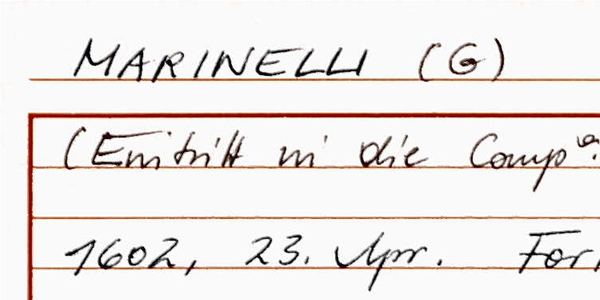 MARINELLI (G)
(Eintritt in die Compª.
1602, 23. Apr. For